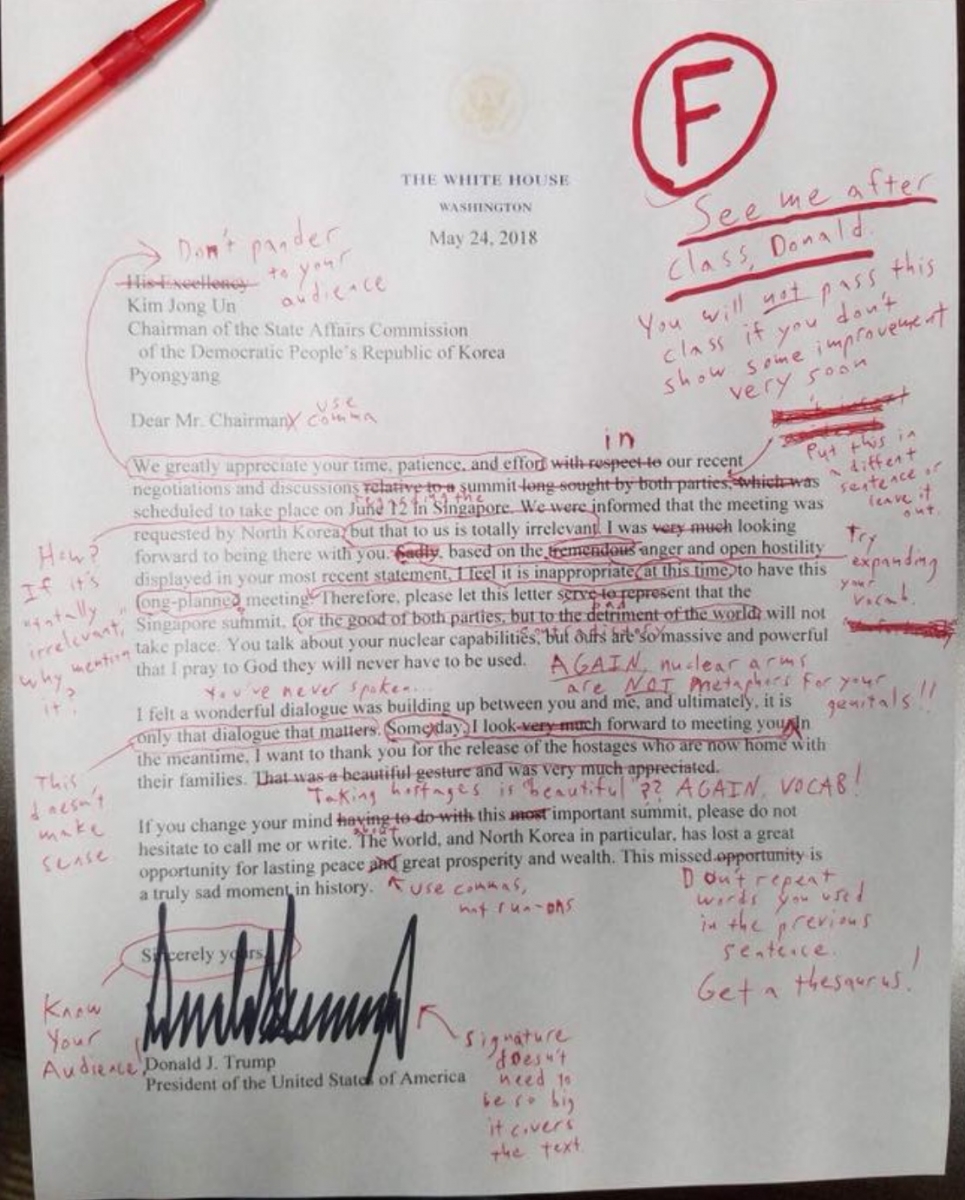 F
See me after
class, Donald.
You will not pass this
class if you don't
show some improvement
very soon
THE WHITE HOUSE
WASHINGTON
May 24, 2018
Don't pander
to your
audience
His Excellency
Kim Jong Un
Chairman of the State Affairs Commission
of the Democratic People's Republic of Korea
Pyongyang
Dear Mr. Chairman
use
comma
in
We greatly appreciate your time, patience, and effort with respect to our recent
negotiations and discussions relative to a summit long sought by both parties, which was
regarding the
scheduled to take place on June 12 in Singapore. We were informed that the meeting was
requested by North Korea, but that to us is totally irrelevant. I was very much looking
forward to being there with you. Sadly, based on the tremendous anger and open hostility
displayed in your most recent statement, I feel it is inappropriate, at this time, to have this
long-planned meeting. Therefore, please let this letter serve to represent that the
Singapore summit, for the good of both parties, but to the detriment of the world, will not
take place. You talk about your nuclear capabilities, but ours are so massive and powerful
that I pray to God they will never have to be used.
Put this in
a diffent
sentence or
leave it
out.
Try
expanding
your
vocab.
How?
If it's
"totally
irrelevant,"
why mention
it?
AGAIN, nuclear arms
are NOT metaphors for your
genitals!!
You've never spoken...
I felt a wonderful dialogue was building up between you and me, and ultimately, it is
only that dialogue that matters. Some day, I look very much forward to meeting you. In
the meantime, I want to thank you for the release of the hostages who are now home with
their families. That was a beautiful gesture and was very much appreciated.
Taking hostages is "beautiful"?? AGAIN, VOCAB!
This
doesn't
make
sense
If you change your mind having to do with this most important summit, please do not
about
hesitate to call me or write. The world, and North Korea in particular, has lost a great
opportunity for lasting peace and great prosperity and wealth. This missed opportunity is
a truly sad moment in history.
use commas,
not run-ons
Don't repeat
words you used
in the previous
sentence.
Get a thesaurus!
Sincerely yours,
Know
Your
Audience!
Donald J. Trump
President of the United States of America
signature
doesn't
need to
be so big
it covers
the text